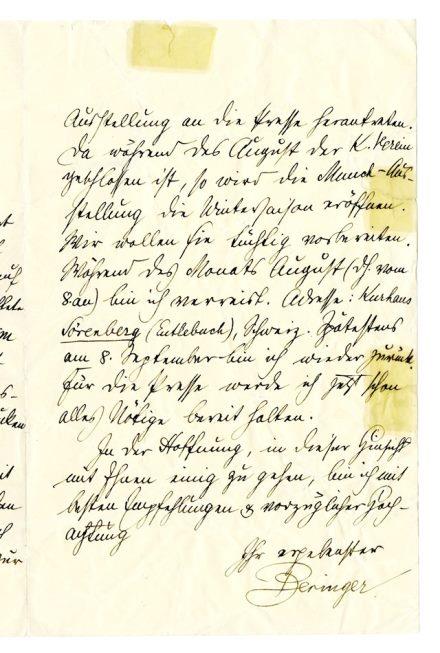 Ausstellung an die Presse herantreten.
Da während des August der K. Verein
geschlossen ist, so wird die Munch-Aus-
stellung die Wintersaison eröffnen.
Wir wollen sie tüchtig vorbereiten.
Während des Monats August (dh. vom
8 an) bin ich verreist. Adresse: Kurhaus
Sörenberg (Entlebuch), Schweiz. Spätestens
am 8. September bin ich wieder zurück.
Für die Presse werde ich jetzt schon
alles Nötige bereit halten.
In der Hoffnung, in dieser Hinsicht
mit Ihnen einig zu gehen, bin ich mit
besten Empfehlungen & vorzüglicher Hoch-
achtung
Ihr ergebenster
Beringer.